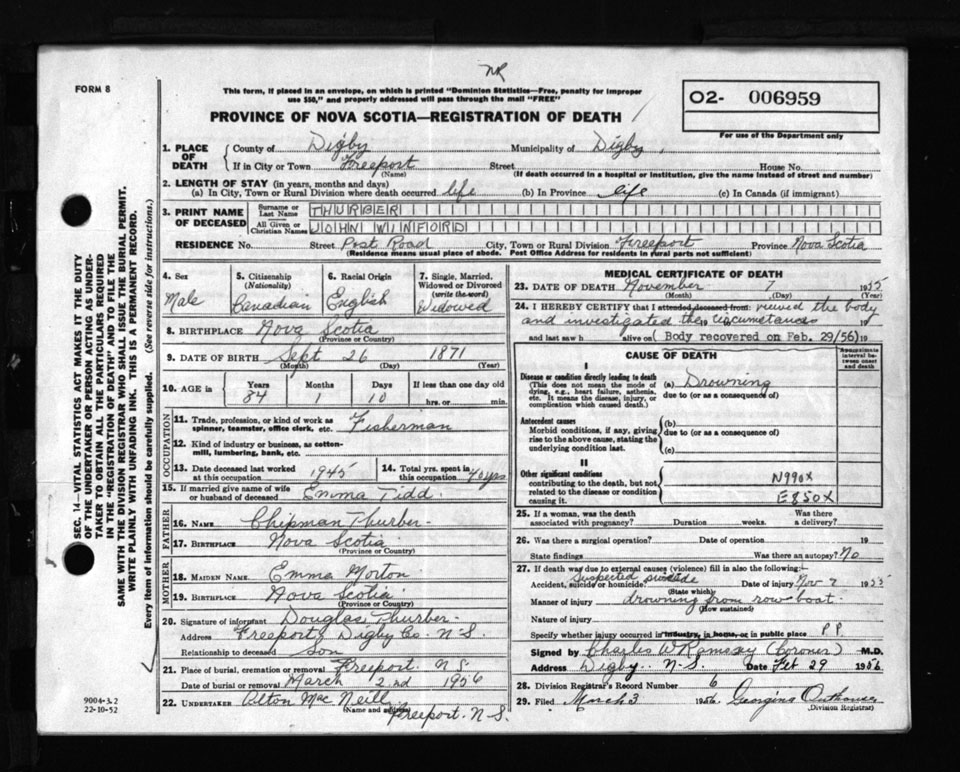 NR
FORM 8
This form, if placed in an envelope, on which is printed "Dominion Statistics—Free, penalty for improper
use $50," and properly addressed will pass through the mail "FREE"
PROVINCE OF NOVA SCOTIA—REGISTRATION OF DEATH
O2- 006959
For use of the Department only
1. PLACE OF DEATH
County of Digby Municipality of Digby
If in City or Town Freeport Street House No.
(Name) (If death occurred in a hospital or institution, give the name instead of street and number)
2. LENGTH OF STAY (in years, months and days)
(a) In City, Town or Rural Division where death occurred life (b) In Province life (c) In Canada (if immigrant)
3. PRINT NAME OF DECEASED
Surname or Last Name THURBER
All Given or Christian Names JOHN WINFORD
RESIDENCE No. Street Post Road City, Town or Rural Division Freeport Province Nova Scotia
(Residence means usual place of abode. Post Office Address for residents in rural parts not sufficient)
4. Sex Male
5. Citizenship (Nationality) Canadian
6. Racial Origin English
7. Single, Married, Widowed or Divorced (write the word) Widowed
8. BIRTHPLACE Nova Scotia
(Province or Country)
9. DATE OF BIRTH Sept 26 1871
(Month) (Day) (Year)
10. AGE in Years Months Days If less than one day old
84 1 10 hrs. or min.
OCCUPATION
11. Trade, profession or kind of work as spinner, teamster, office clerk, etc. Fisherman
12. Kind of industry or business, as cotton-mill, lumbering, bank, etc.
13. Date deceased last worked at this occupation 1945
14. Total yrs. spent in this occupation 70 yrs
15. If married give name of wife or husband of deceased Emma Tidd
FATHER
16. NAME Chipman Thurber
17. BIRTHPLACE Nova Scotia
(Province or Country)
MOTHER
18. MAIDEN NAME Emma Morton
19. BIRTHPLACE Nova Scotia
(Province or Country)
20. Signature of informant Douglas Thurber
Address Freeport, Digby Co. N-S.
Relationship to deceased Son
21. Place of burial, cremation or removal Freeport N.S.
Date of burial or removal March 2nd 1956
22. UNDERTAKER Alton Mac Neill
(Name and address) Freeport. N-S.
MEDICAL CERTIFICATE OF DEATH
23. DATE OF DEATH November 7 1955
(Month) (Day) (Year)
24. I HEREBY CERTIFY that I attended deceased from: viewed the body
and investigated the circumstances
and last saw h alive on (Body recovered on Feb. 29/56) 19
CAUSE OF DEATH
Approximate interval between onset and death
I
Disease or condition directly leading to death
(This does not mean the mode of dying, e.g., heart failure, asthenia, etc. It means the disease, injury, or complication which caused death.)
(a) Drowning
due to (or as a consequence of)
Antecedent causes
Morbid conditions, if any, giving rise to the above cause, stating the underlying condition last.
(b)
due to (or as a consequence of)
(c)
II
Other significant conditions
contributing to the death, but not related to the disease or condition causing it.
N990X
E850X
25. If a woman, was the death associated with pregnancy? Duration weeks. Was there a delivery?
26. Was there a surgical operation? Date of operation 19
State findings Was there an autopsy? No
27. If death was due to external causes (violence) fill in also the following:—
Accident, suicide or homicide? Suspected suicide Date of injury Nov 7 1955
(State which)
Manner of injury drowning from row boat
(How sustained)
Nature of injury
Specify whether injury occurred in industry, in home, or in public place P P.
Signed by Charles W Ramsay (Coroner) M.D.
Address Digby. N-S. Date Feb 29 1956
28. Division Registrar's Record Number 6
29. Filed March 3 1956 Georgina Outhouse
(Division Registrar)
SEC. 14—VITAL STATISTICS ACT MAKES IT THE DUTY
OF THE UNDERTAKER OR PERSON ACTING AS UNDER-
TAKER TO OBTAIN ALL THE PARTICULARS REQUIRED
IN THE "REGISTRATION OF DEATH" AND TO FILE THE
SAME WITH THE DIVISION REGISTRAR WHO SHALL ISSUE THE BURIAL PERMIT.
WRITE PLAINLY WITH UNFADING INK. THIS IS A PERMANENT RECORD.
Every item of information should be carefully supplied. (See reverse side for instructions.)
9004-3.2
22-10-52